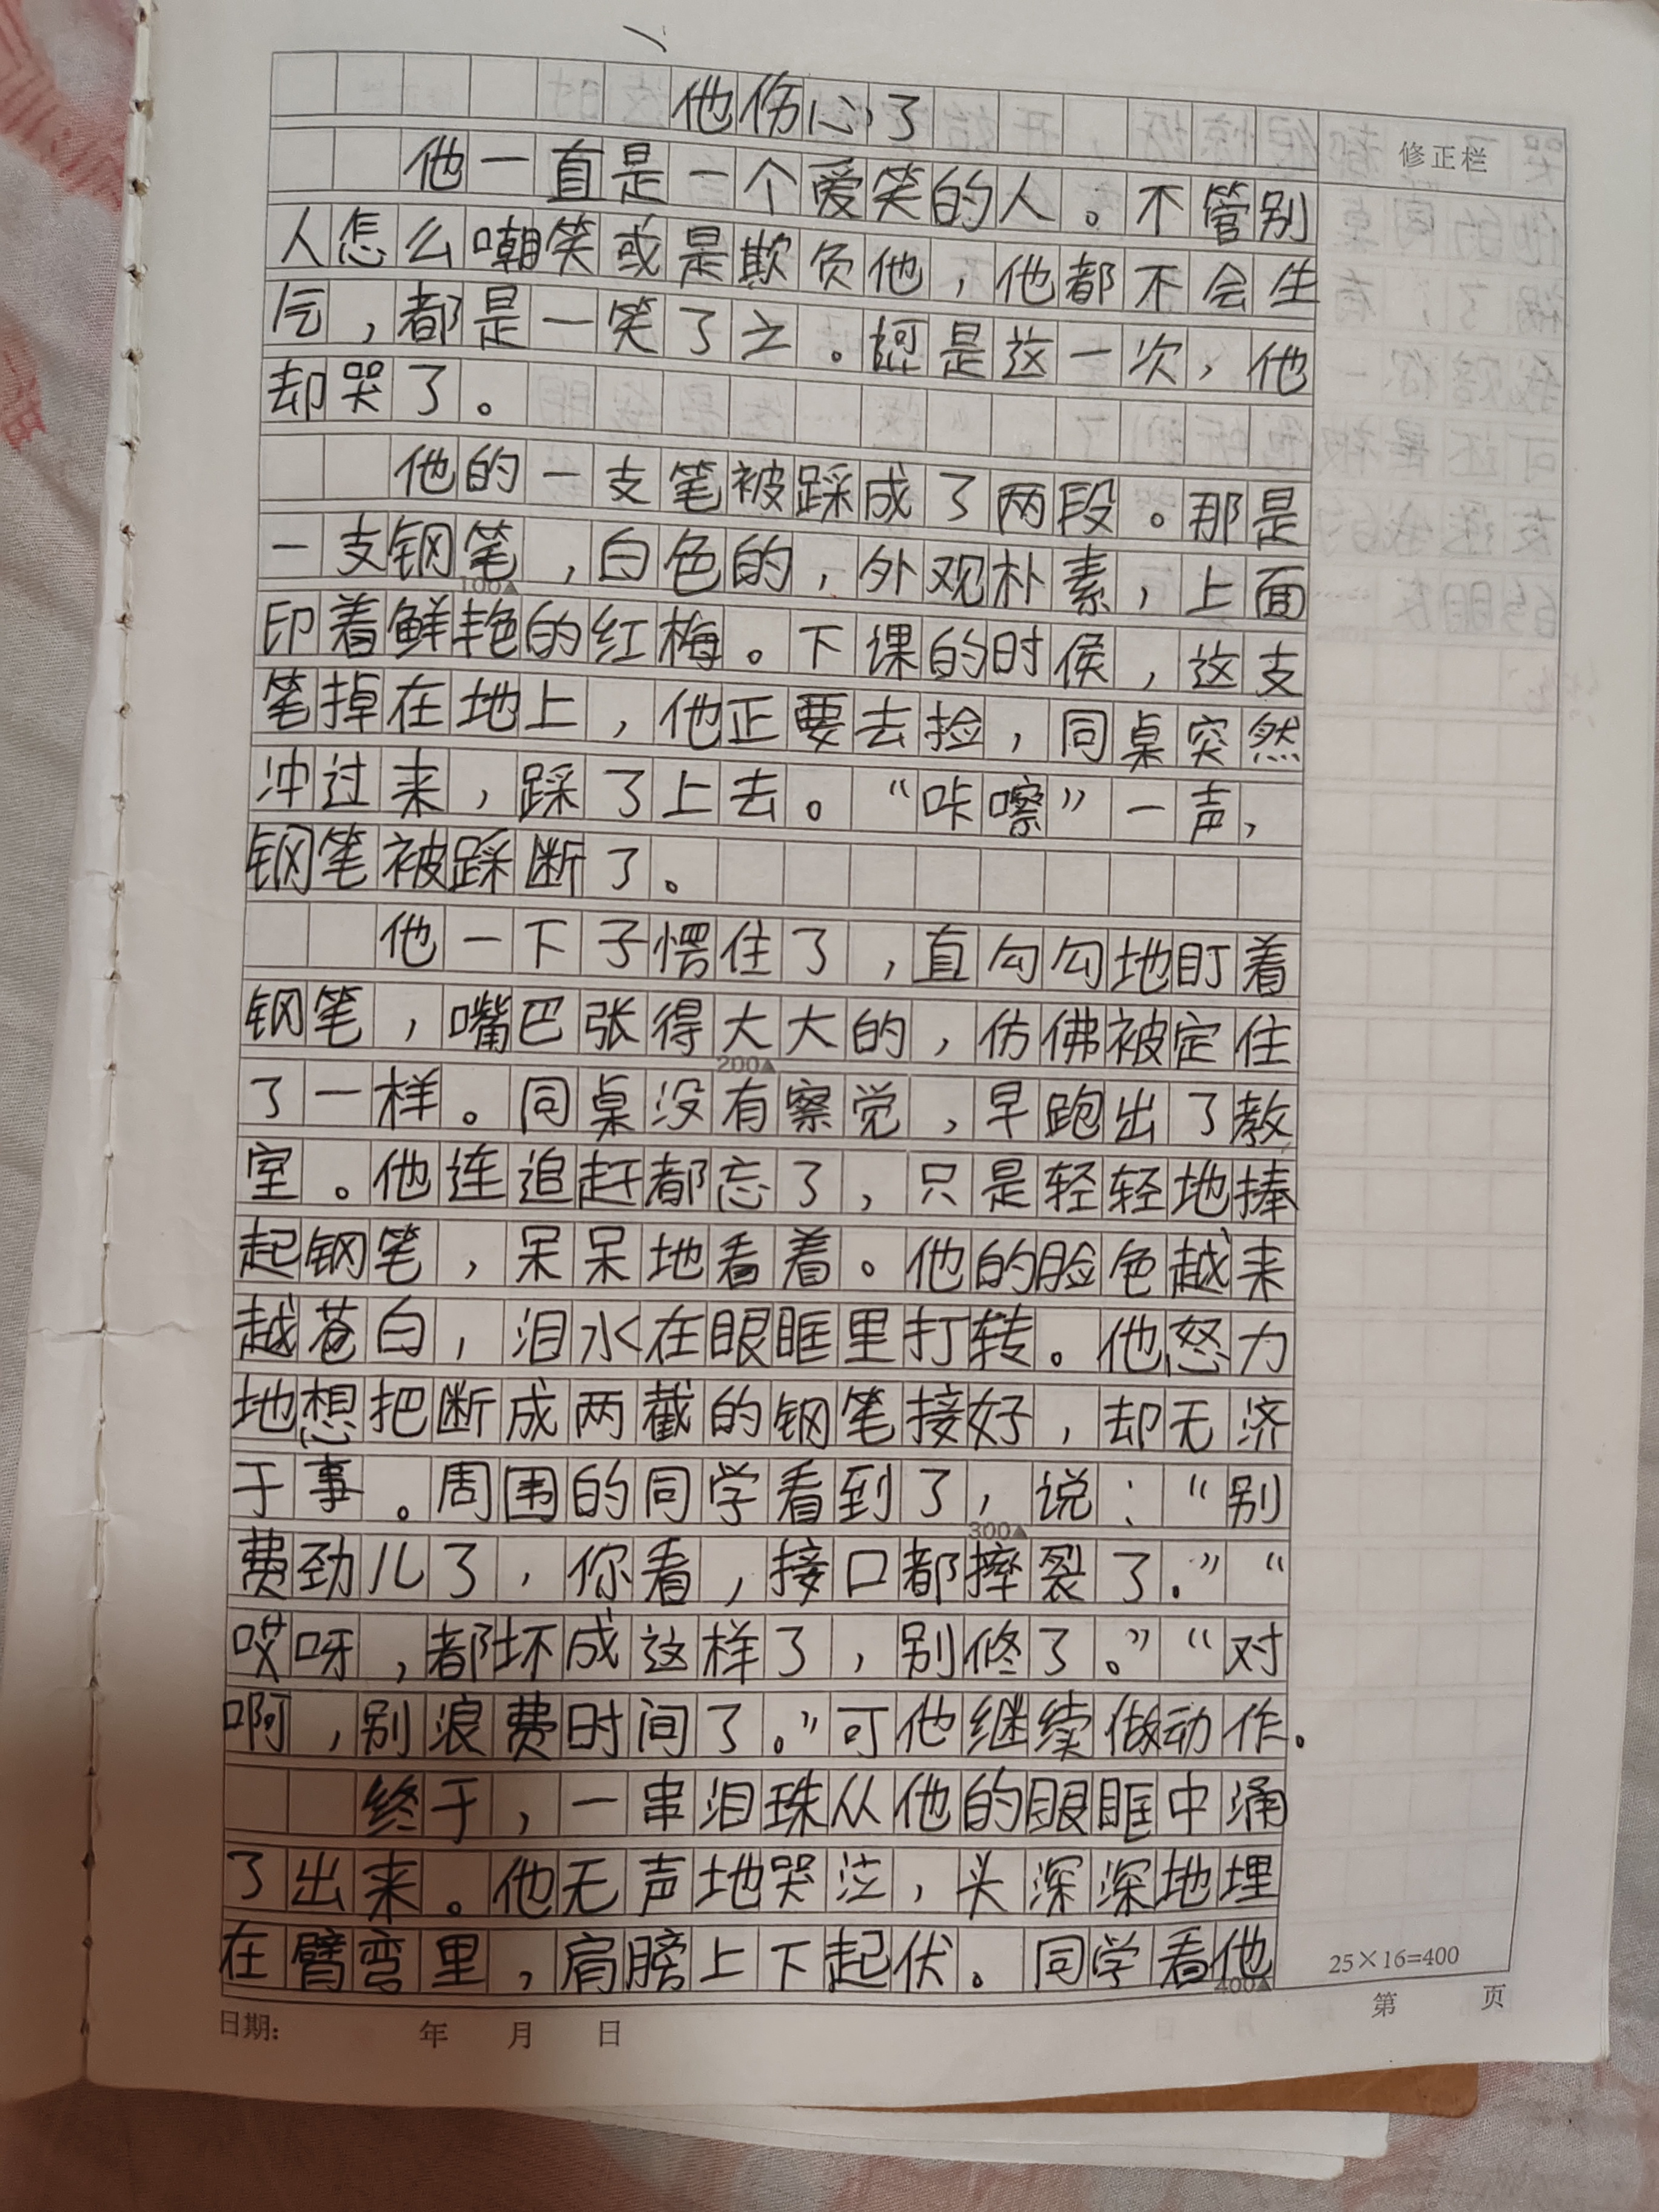 他伤心了
修正栏
他一直是一个爱笑的人。不管别
人怎么嘲笑或是欺负他，他都不会生
气，都是一笑了之。可是这一次，他
却哭了。
他的一支笔被踩成了两段。那是
一支钢笔，白色的，外观朴素，上面
100▲
印着鲜艳的红梅。下课的时侯，这支
笔掉在地上，他正要去捡，同桌突然
冲过来，踩了上去。“咔嚓”一声，
钢笔被踩断了。
他一下子愣住了，直勾勾地盯着
钢笔，嘴巴张得大大的，仿佛被定住
200▲
了一样。同桌没有察觉，早跑出了教
室。他连追赶都忘了，只是轻轻地捧
起钢笔，呆呆地看着。他的脸色越来
越苍白，泪水在眼眶里打转。他怒力
地想把断成两截的钢笔接好，却无济
于事。周围的同学看到了，说：“别
300▲
费劲儿了，你看，接口都摔裂了。”“
哎呀，都坏成这样了，别修了。”“对
啊，别浪费时间了。”可他继续做动作。
终于，一串泪珠从他的眼眶中涌
了出来。他无声地哭泣，头深深地埋
在臂弯里，肩膀上下起伏。同学看他
400▲
25×16=400
日期： 年 月 日
第 页